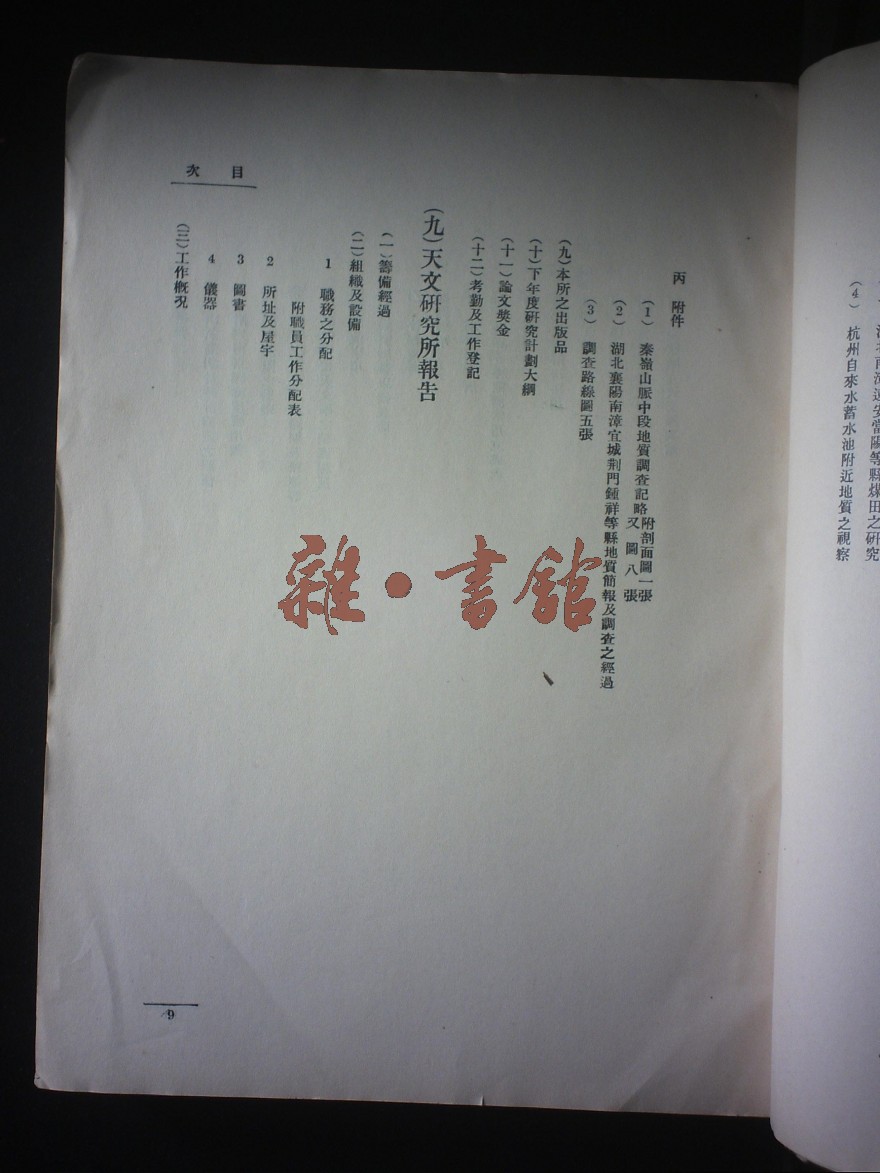 (4) 杭州自來水蓄水池附近地質之視察
目次
丙 附件
(1) 秦嶺山脈中段地質調查記略 附剖面圖一張
又圖八張
(2) 湖北襄陽南漳宜城荆門鍾祥等縣地質簡報及調查之經過
(3) 調查路線圖五張
(九)本所之出版品
(十)下年度研究計劃大綱
(十一)論文獎金
(十二)考勤及工作登記
(九)天文研究所報告
(一)籌備經過
(二)組織及設備
1 職務之分配
附職員工作分配表
2 所址及屋宇
3 圖書
4 儀器
(三)工作概况
9
雜·書館